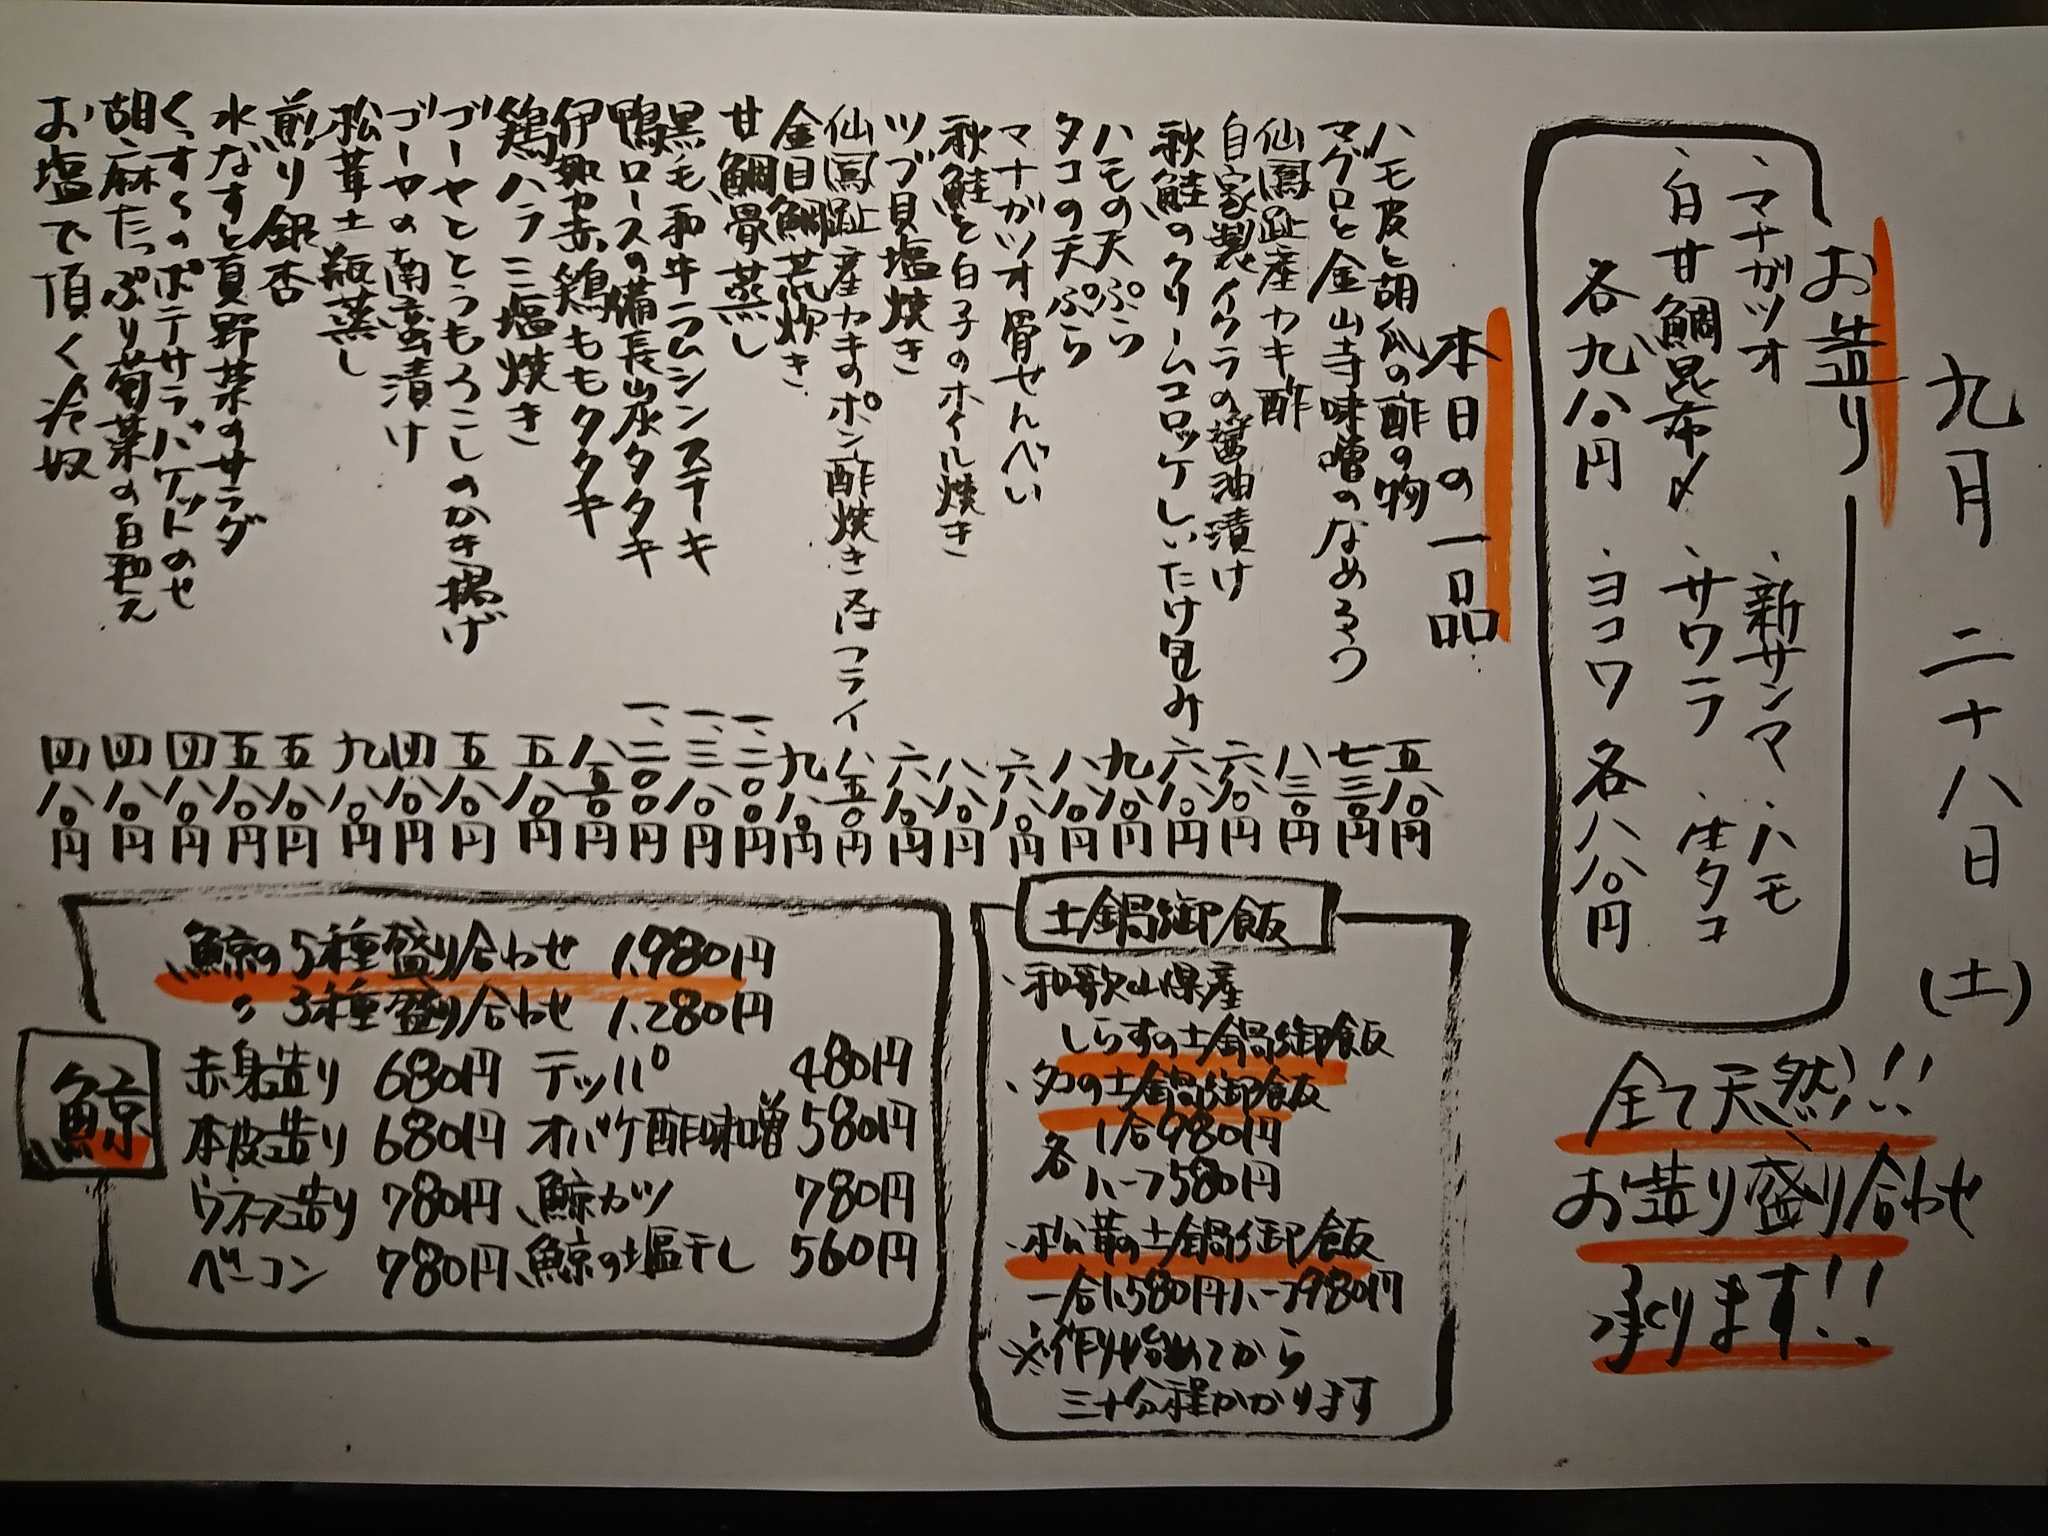 九月二十八日(土)
お造り
、マナガツオ
、白甘鯛昆布〆
各九八〇円
、新サンマ 、ハモ
、サワラ 、生タコ
、ヨコワ 各八八〇円
全て天然!!
お造り盛り合わせ
承ります!!
本日の一品
ハモ皮と胡瓜の酢の物 五八〇円
マグロと金山寺味噌のなめろう 七三〇円
仙鳳趾産カキ酢 八三〇円
自家製イクラの醤油漬け 六八〇円
秋鮭のクリームコロッケしいたけ包み 六八〇円
ハモの天ぷら 九八〇円
タコの天ぷら 八八〇円
マナガツオ骨せんべい 六八〇円
秋鮭と白子のホイル焼き 八八〇円
ツブ貝塩焼き 六八〇円
仙鳳趾産カキのポン酢焼き又はフライ 八五〇円
金目鯛荒炊き 九八〇円
甘鯛骨蒸し 一、二〇〇円
黒毛和牛ラムシンステーキ 一、三八〇円
鴨ロースの備長炭タタキ 一、二〇〇円
伊勢赤鶏ももタタキ 八五〇円
鶏ハラミ塩焼き 五八〇円
ゴーヤととうもろこしのかき揚げ 五八〇円
ゴーヤの南蛮漬け 四八〇円
松茸土瓶蒸し 九八〇円
煎り銀杏 五八〇円
水なすと夏野菜のサラダ 五八〇円
くずくずのポテサラバケットのせ 四八〇円
胡麻たっぷり菊菜の白和え 四八〇円
お塩で頂く冷奴 四八〇円
土鍋御飯
、和歌山県産
しらすの土鍋御飯
、タコの土鍋御飯
各 1合980円
ハーフ580円
、松茸の土鍋御飯
一合1,580円ハーフ980円
※作り始めてから
三十分程かかります
鯨
、鯨の5種盛り合わせ 1,980円
〃 3種盛り合わせ 1,280円
赤身造り 680円 テッパ 480円
本皮造り 680円 オバケ酢味噌 580円
ウネス造り 780円 、鯨カツ 780円
ベーコン 780円 、鯨の塩干し 560円